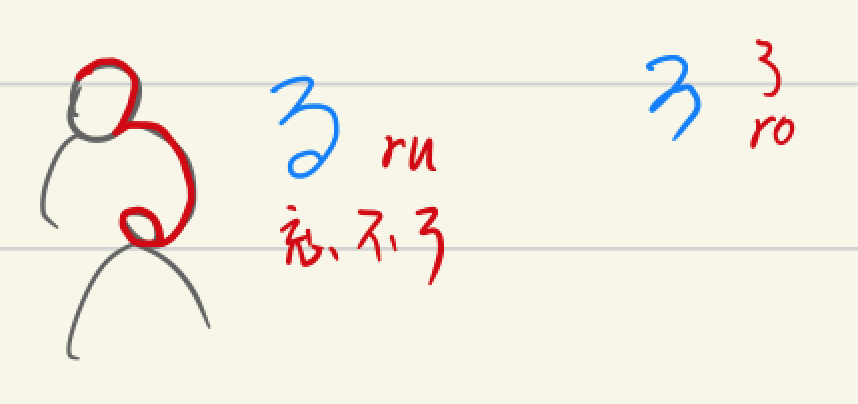 る ru
忘不了
ろ ろ
ro